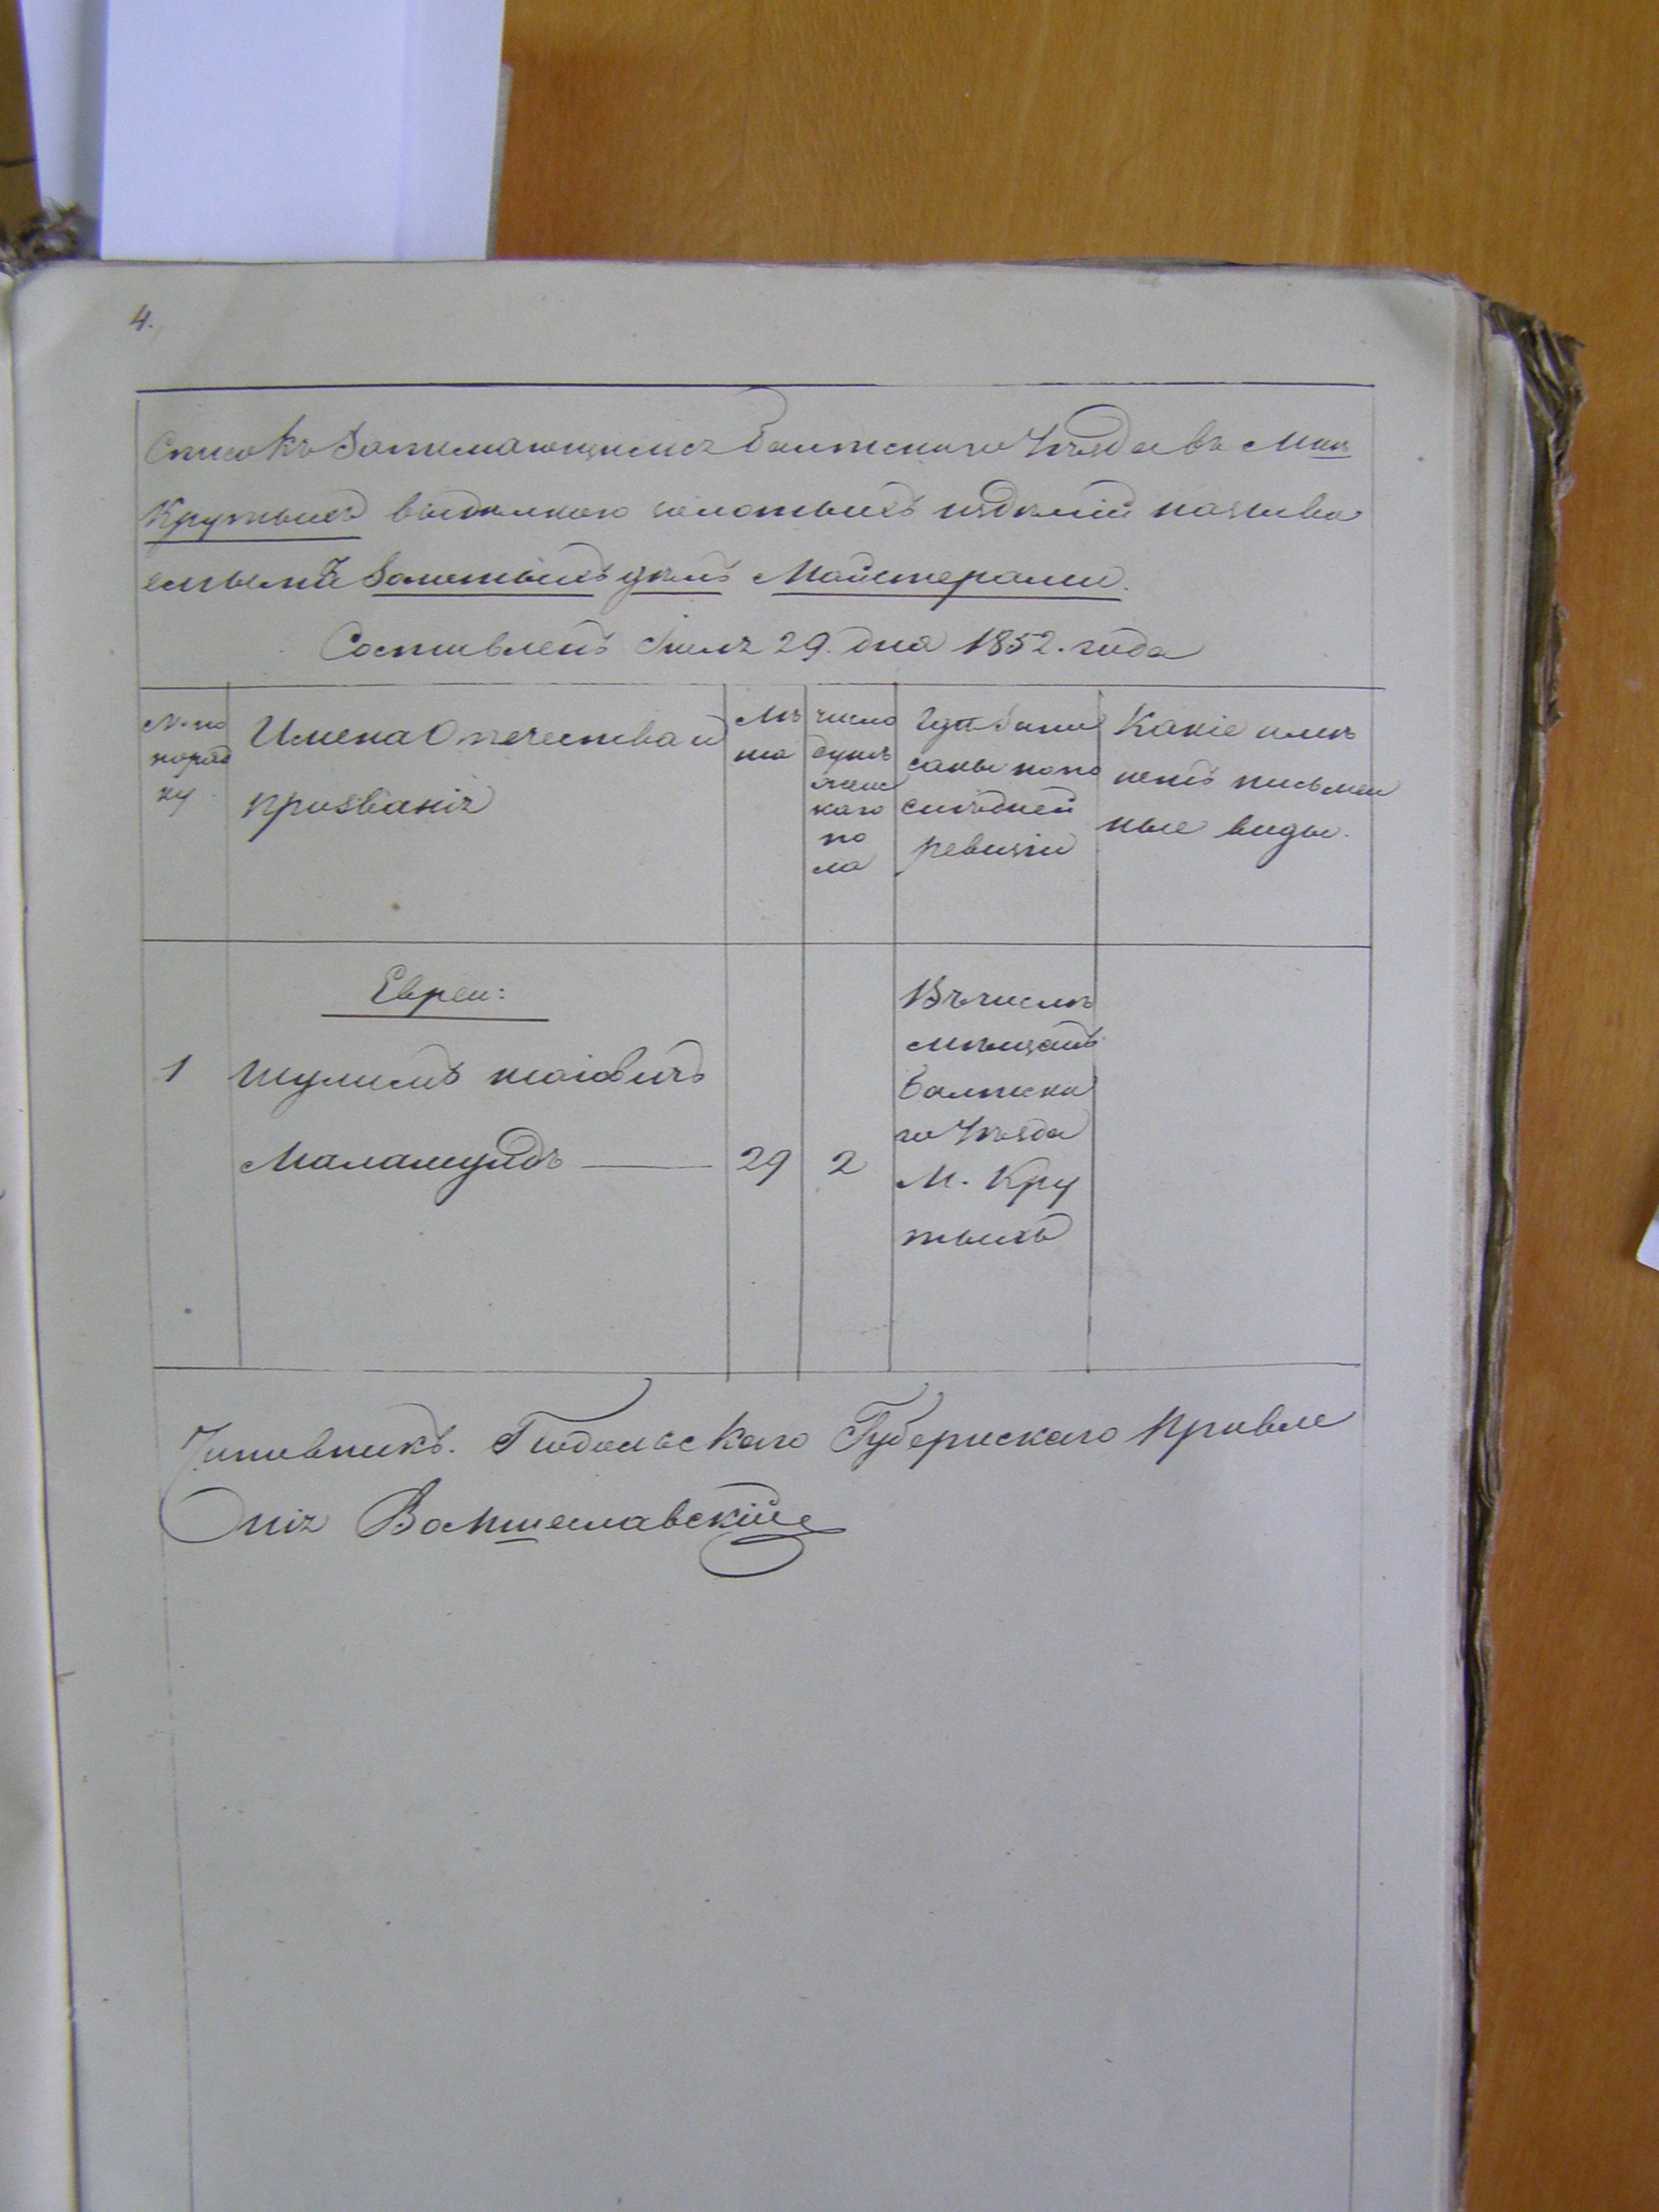 4.
Списокъ занимающимся Балтскаго Уѣзда въ Мѣс
Крутыхъ выдѣлкою золотыхъ издѣлій называ
емымъ Золотыхъ дѣлъ Майстерами.
Составленъ Іюля 29. дня 1852. года
№ по
поряд
ку
Имена Отечества и
призванія
Лѣ
та
число
душъ
женс
каго
по
ла
гдѣ запи
саны по по
слѣдней
ревизіи
Какіе имѣ
ютъ письмен
ные виды.
Евреи:
1
Шулимъ
Маламудъ
29
2
Въ числѣ
мѣщанъ
Балтска
го Уѣзда
М. Кру
тыхъ
Чиновникъ. Подольскаго Губернскаго Правле
нія